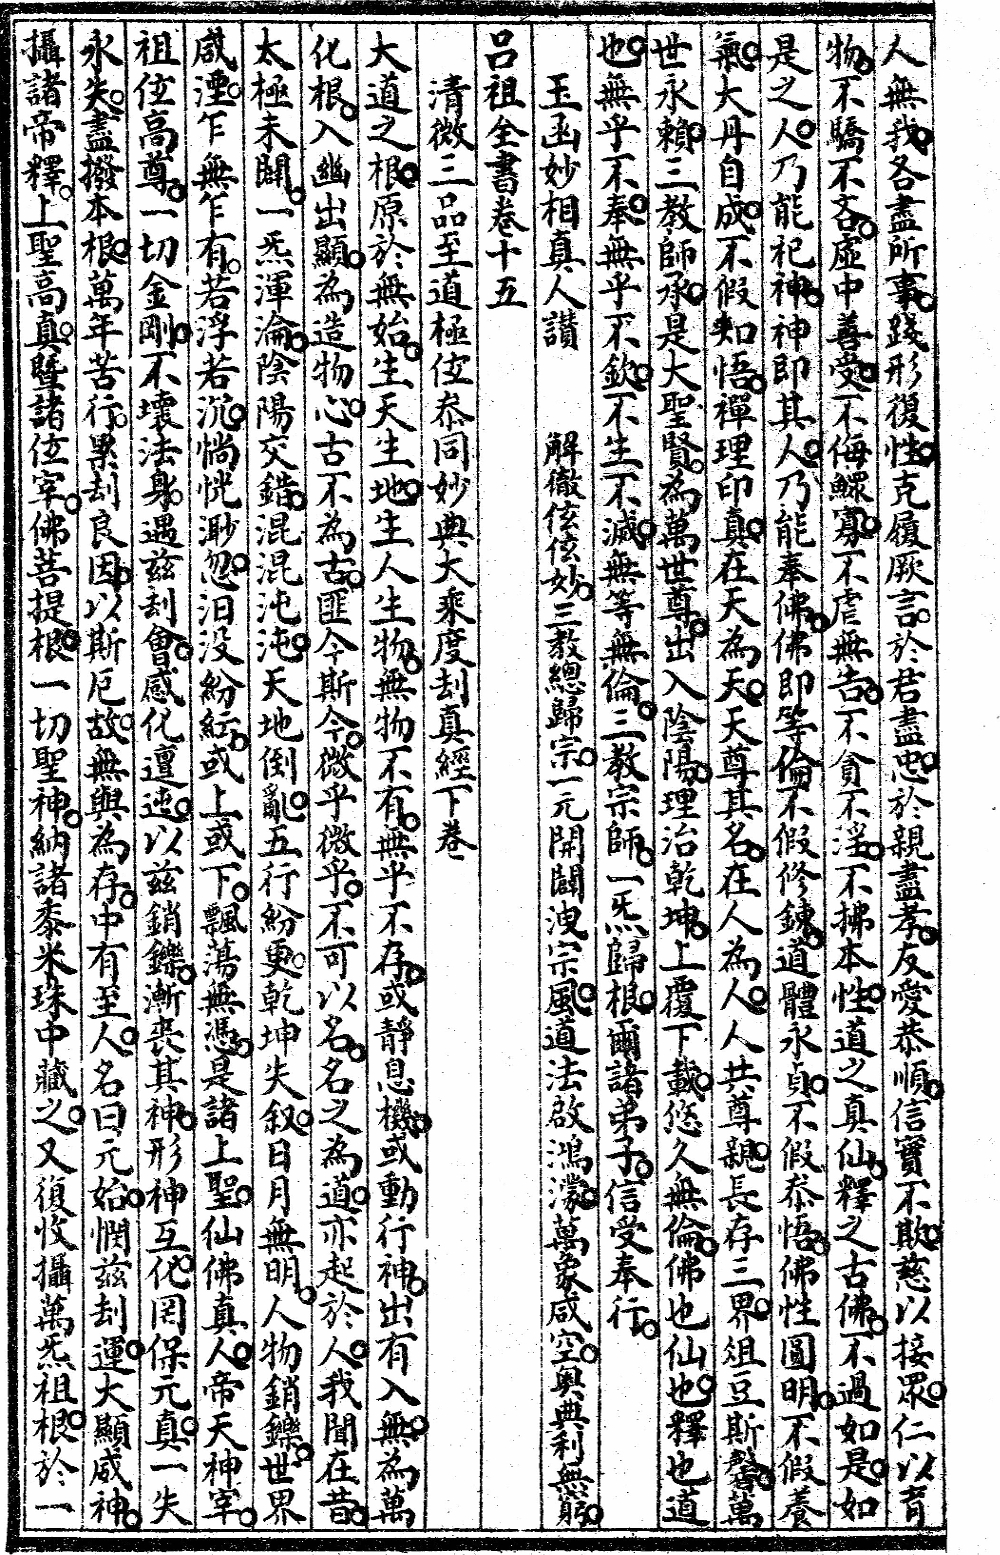 人無我各盡所事踐形復性克履厥言於君盡忠於親盡孝友愛恭順信實不欺慈以接眾仁以育
物不驕不吝虛中善受不侮鰥寡不虐無告不貪不淫不拂本性道之真仙釋之古佛不過如是如
是之人乃能祀神神即其人乃能奉佛佛即等倫不假修鍊道體永貞不假叅悟佛性圓明不假養
氣大丹自成不假知悟禪理印真在天為天天尊其名在人為人人共尊親長存三界俎豆斯馨萬
世永賴三教師承是大聖賢為萬世尊出入陰陽理治乾坤上覆下載悠久無倫佛也仙也釋也道
也無乎不奉無乎不欽不生不滅無等無倫三教宗師一炁歸根爾諸弟子信受奉行
玉函妙相真人讚　解徹佉佉妙三教總歸宗一元開闢洩宗風道法啟鴻濛萬象咸空奧典利無窮
呂祖全書卷十五
清微三品至道極位叅同妙典大乘度刦真經下卷
大道之根原於無始生天生地生人生物無物不有無乎不存或靜息機或動行神出有入無為萬
化根入幽出顯為造物心古不為古匪今斯今微乎微乎不可以名名之為道亦起於人我聞在昔
太極未闢一炁渾淪陰陽交錯混混沌沌天地倒亂五行紛更乾坤失叙日月無明人物銷鑠世界
咸湮乍無乍有若浮若沉惝恍渺忽汩沒紛紜或上或下飄蕩無憑是諸上聖仙佛真人帝天神宰
祖位高尊一切金剛不壞法身遇茲刦會感化邅迍以茲銷鑠漸喪其神形神互化罔保元真一失
永失盡撥本根萬年苦行累刦良因以斯厄故無與為存中有至人名曰元始憫茲刦運大顯威神
攝諸帝釋上聖高真暨諸位宰佛菩提根一切聖神納諸黍米珠中藏之又復收攝萬炁祖根於一